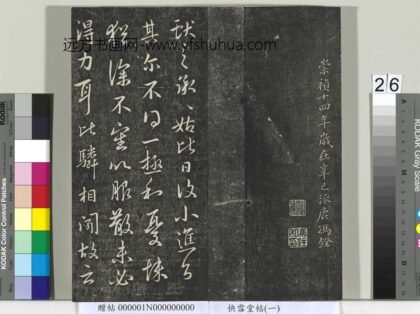 远方书画网-www.yfshuhua.com
崇禎十四年歲在辛巳涿鹿馮銓
献之承姑比日復小進退
其尔不得一極和憂悚
猶深不審以服散未必
得力耳比驎相聞故云
26
KODAK Color Control Patches
KODAK Gray Scale
赠帖 000001N000000000 快雪堂帖(一)